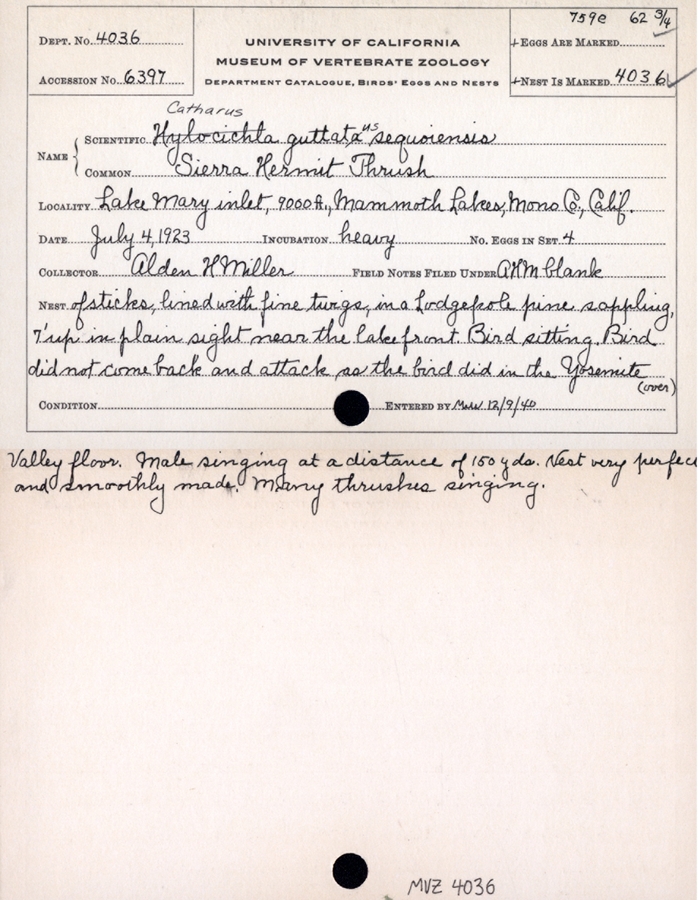 759e 62 3/4
DEPT. No. 4036
UNIVERSITY OF CALIFORNIA
+EGGS ARE MARKED
MUSEUM OF VERTEBRATE ZOOLOGY
ACCESSION No. 6397
DEPARTMENT CATALOGUE, BIRDS' EGGS AND NESTS
+NEST IS MARKED 4036
Catharus
NAME { SCIENTIFIC Hylocichla guttata us sequoiensis
COMMON Sierra Hermit Thrush
LOCALITY Lake Mary inlet, 9000 ft., Mammoth Lakes, Mono Co., Calif.
DATE July 4, 1923 INCUBATION heavy No. EGGS IN SET 4
COLLECTOR Alden H Miller FIELD NOTES FILED UNDER AHM blank
NEST of sticks, lined with fine twigs, in a Lodgepole pine sappling,
7' up in plain sight near the lake front. Bird sitting. Bird
did not come back and attack as the bird did in the Yosemite
(over)
CONDITION ENTERED BY 12/9/40
Valley floor. Male singing at a distance of 150 yds. Nest very perfec
and smoothly made. Many thrushes singing.
MVZ 4036